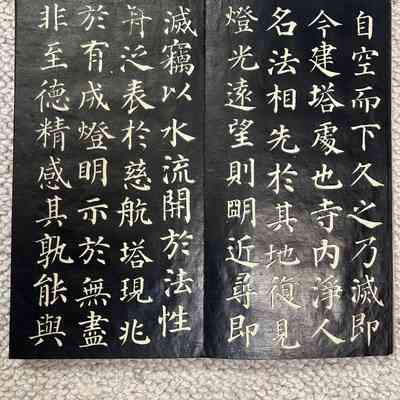 自空而下久之乃滅即
今建塔處也寺內淨人
名法相先於其地復見
燈光遠望則明近尋即
滅竊以水流開於法性
舟泛表於慈航塔現兆
於有成燈明示於無盡
非至德精感其孰能與